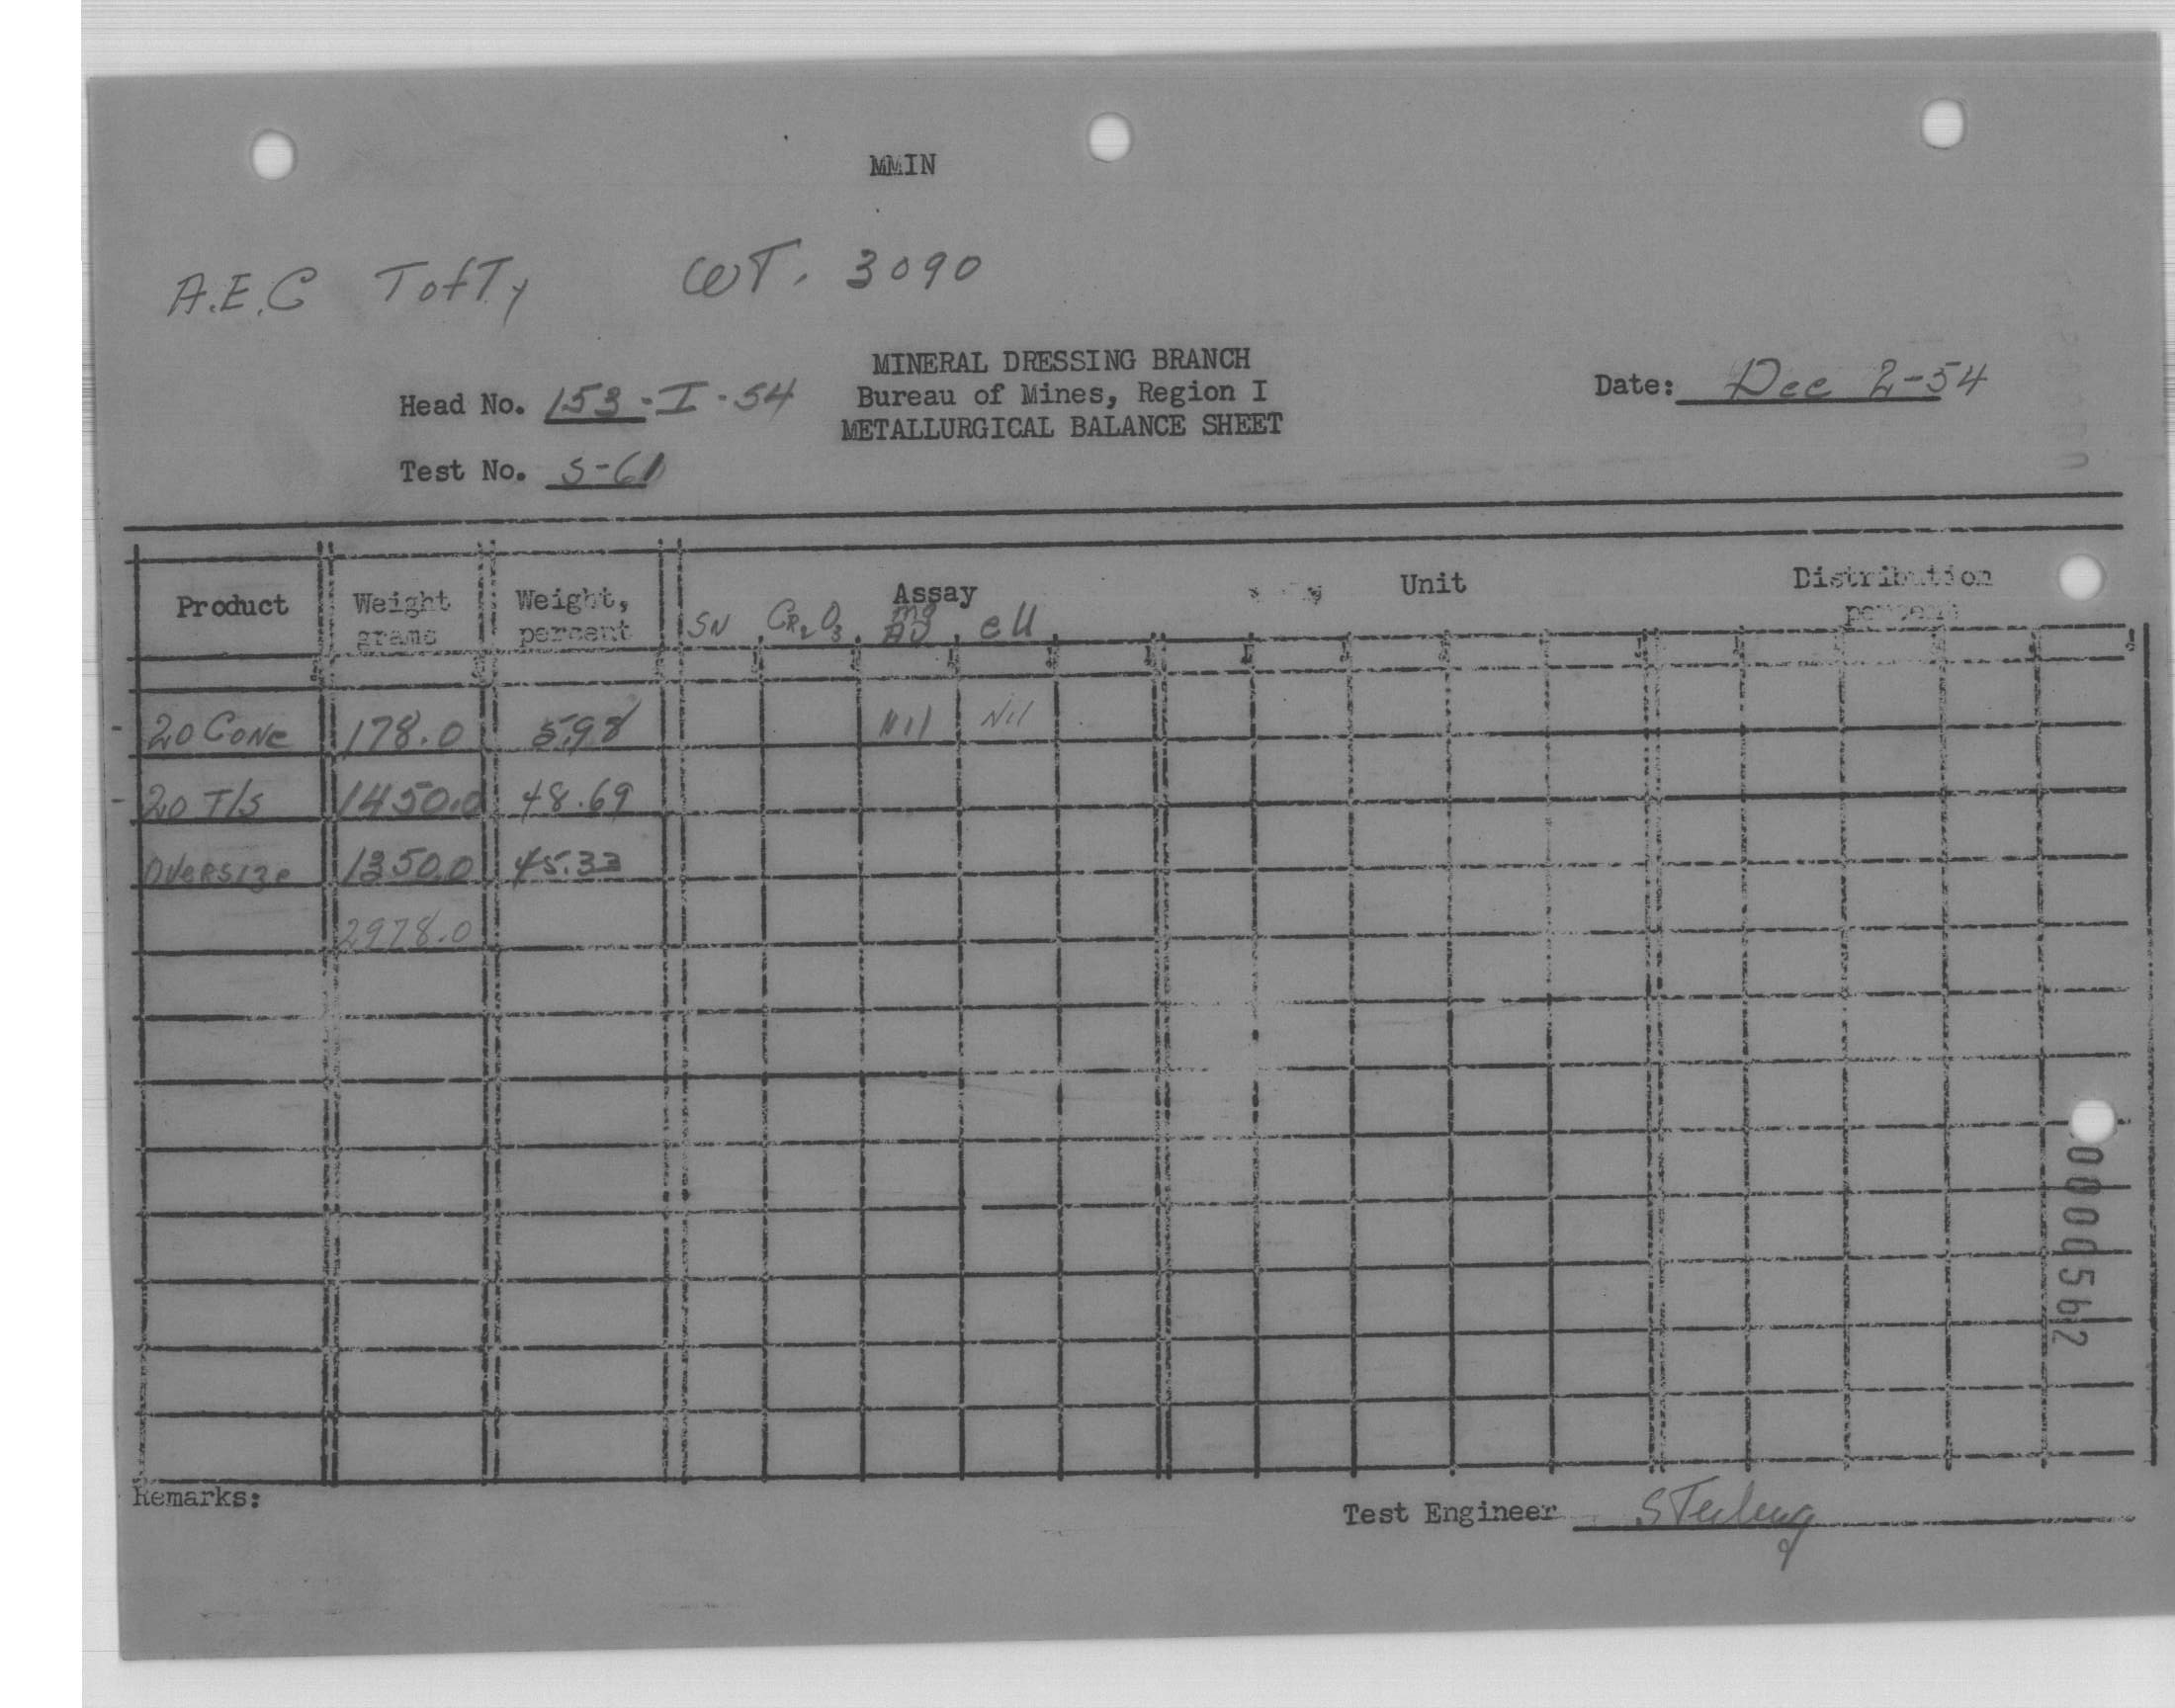 MMIN
A.E.C Tofty WT. 3090
MINERAL DRESSING BRANCH
Head No. 153-I-54 Bureau of Mines, Region I Date: Dec 2-54
METALLURGICAL BALANCE SHEET
Test No. S-61
Product Weight grams Weight, percent Assay Unit Distribution percent
SN CR2O3 eU
-20 CONC 178.0 5.98 Nil Nil
-20 T/S 1450.0 48.69
OVERSIZE 1350.0 45.33
2978.0
0000562
Remarks:
Test Engineer Sterling